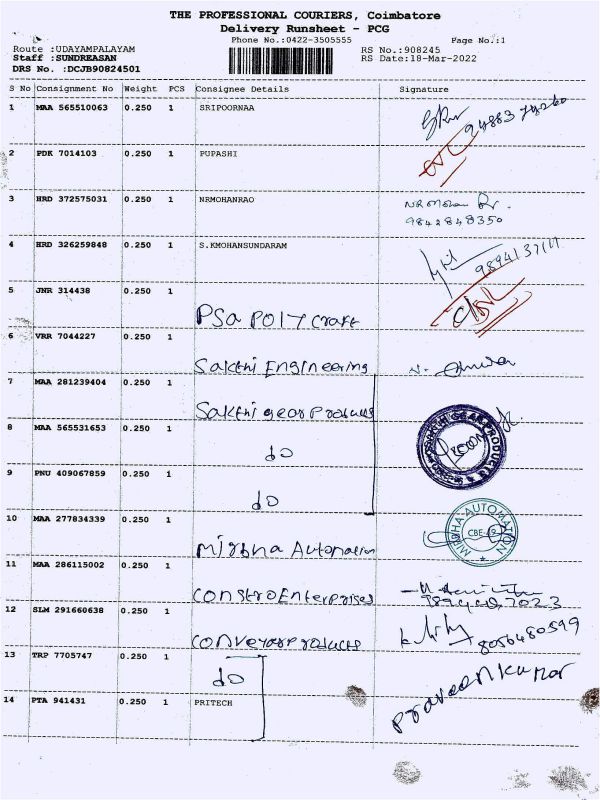 THE PROFESSIONAL COURIERS, Coimbatore
Delivery Runsheet - PCG
Phone No.:0422-3505555
Page No.:1
Route :UDAYAMPALAYAM
RS No.:908245
Staff :SUNDREASAN
RS Date:18-Mar-2022
DRS No. :DCJB90824501
S No Consignment No Weight PCS Consignee Details Signature
1 MAA 565510063 0.250 1 SRIPOORNAA
2 PDK 7014103 0.250 1 PUPASHI
3 HRD 372575031 0.250 1 NRMOHANRAO NRMohan
9842848350
4 HRD 326259848 0.250 1 S.KMOHANSUNDARAM
5 JNR 314438 0.250 1
PSa Poly craft
6 VRR 7044227 0.250 1
Sakthi Engineering
7 MAA 281239404 0.250 1
Sakthi gear Products
8 MAA 565531653 0.250 1
do
SAKTHI GEAR PRODUCTS
9 PNU 409067859 0.250 1
do
10 MAA 277834339 0.250 1
Mirbha Automation
MIRBHA AUTOMATION
CBE-49
11 MAA 286115002 0.250 1
Constro Enterprises
12 SLM 291660638 0.250 1
Conveyor Products
8056480599
13 TRP 7705747 0.250 1
do
14 PTA 941431 0.250 1 PRITECH
Praveen Kumar